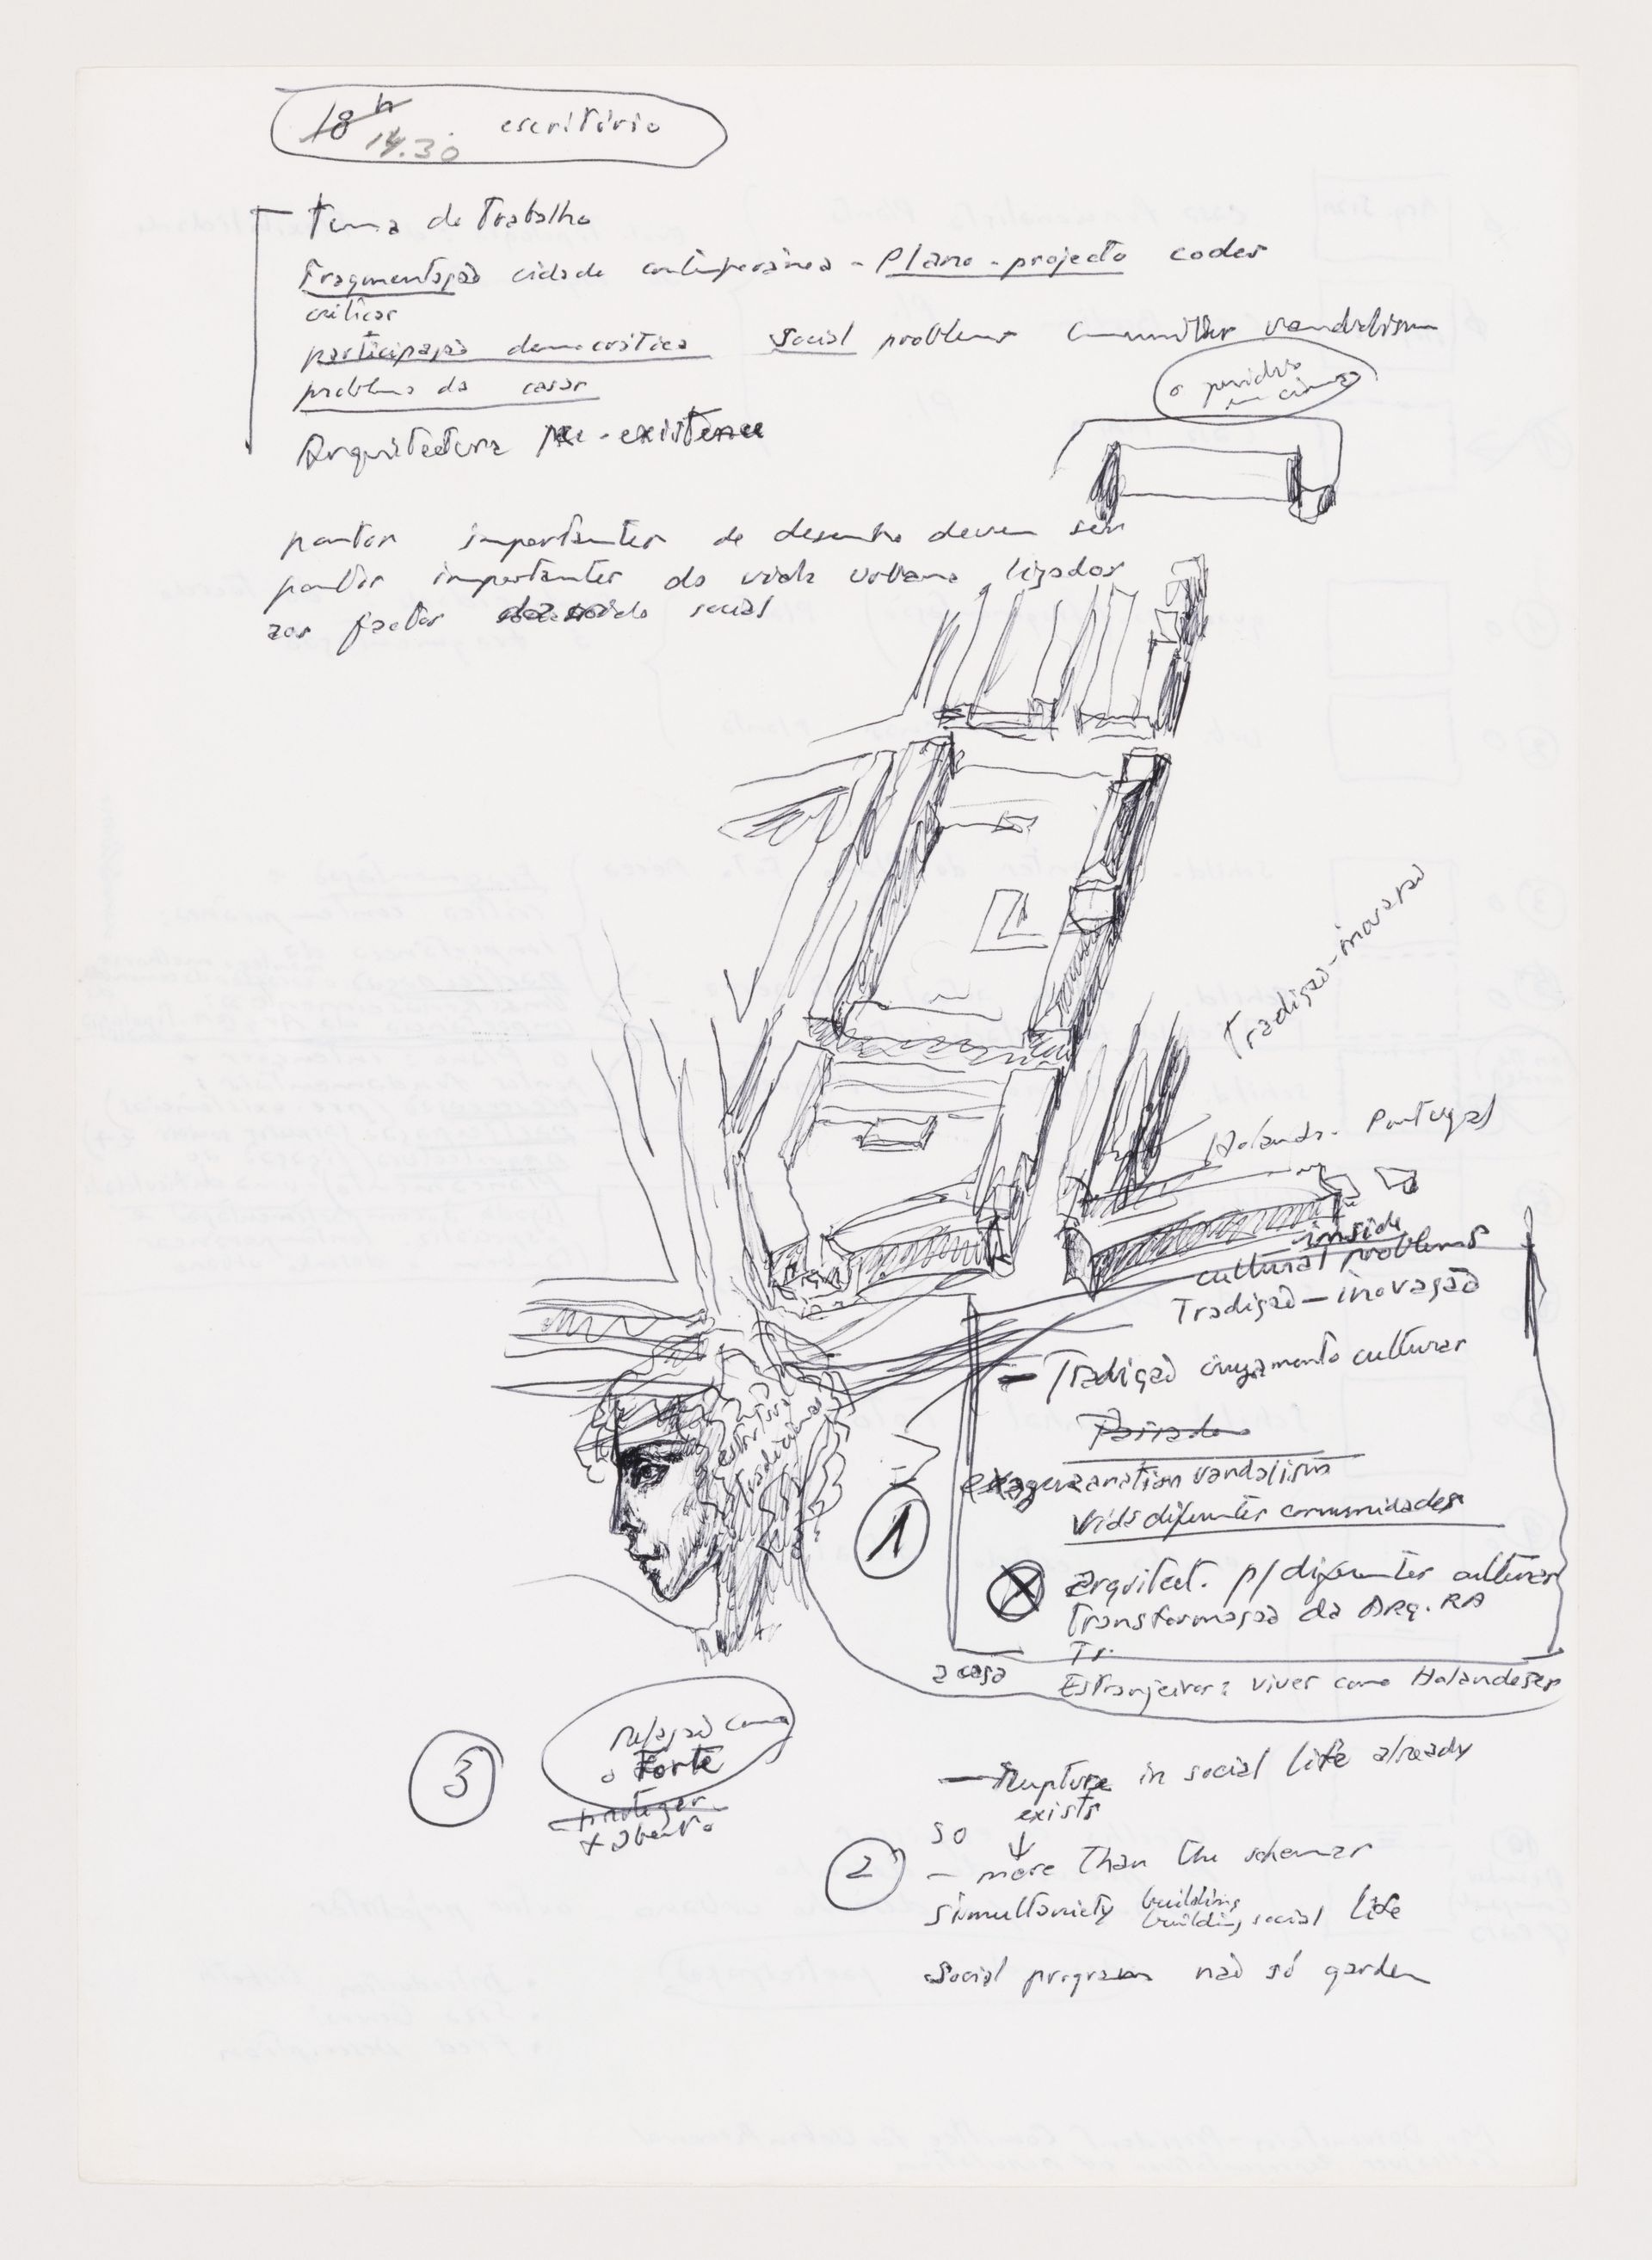 18h escritório
14.30
tema de trabalho
Fragmentação cidade contemporânea - Plano - projecto codes
criticar
participação democratica social problems vandalism
problema da casas
Arquitectura existence
pontos importantes de desenho devem ser
pontos importantes da vida urbana ligados
aos factos social
Tradição-inovação
Holanda - Portugal
inside
cultural problems
Tradição - inovação
- Tradição cruzamento culturas
vandalism
vida diferentes comunidades
arquitect. p/ diferentes culturas
Transformação da Arq. RA
Tr.
a casa
Estranjeiros: viver como Holandeses
1
3
relação com
o Forte
proteger
+ aberto
- Rupture in social life already
exists
so ↓
2
- more than the schemas
simultaniety building
building social life
social program não só garden